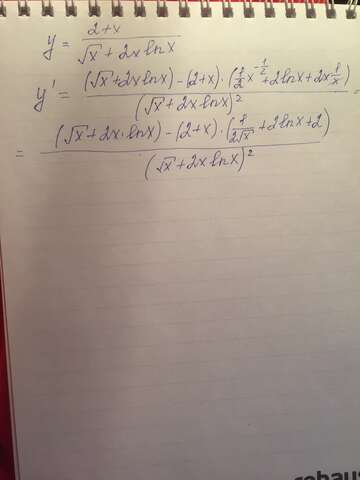 y = \frac{2+x}{\sqrt{x} + 2x \ln x}
y' = \frac{(\sqrt{x} + 2x \ln x) - (2+x) \cdot (\frac{1}{2} x^{-\frac{1}{2}} + 2 \ln x + 2x \frac{1}{x})}{(\sqrt{x} + 2x \ln x)^2} =
= \frac{(\sqrt{x} + 2x \cdot \ln x) - (2+x) \cdot (\frac{1}{2\sqrt{x}} + 2 \ln x + 2)}{(\sqrt{x} + 2x \ln x)^2}